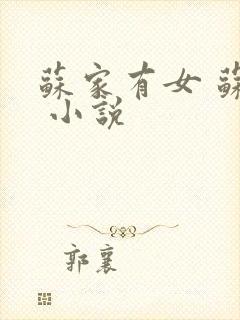 蘇家有女 蘇
小說
郭襄